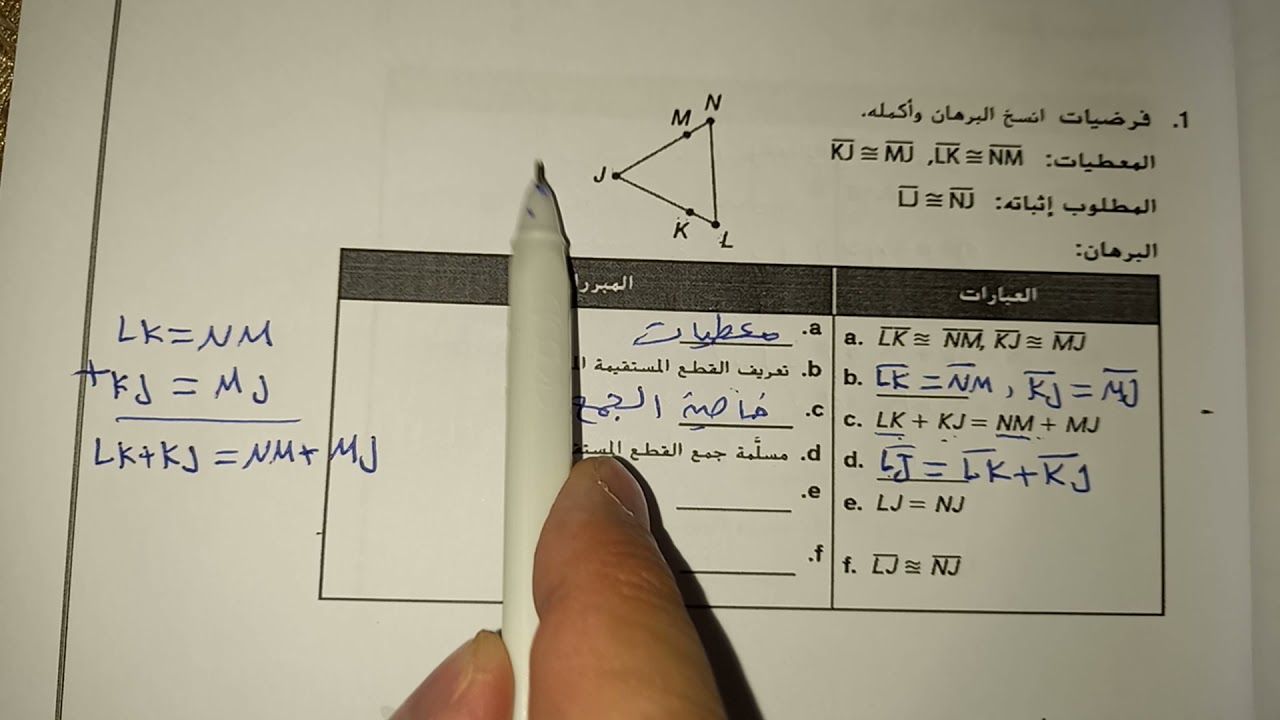 1. فرضيات انسخ البرهان وأكمله.
المعطيات: KJ ≅ MJ, LK ≅ NM
المطلوب إثباته: LJ ≅ NJ
البرهان:
N
M
J
K
L
العبارات
a. LK ≅ NM, KJ ≅ MJ
a. معطيات
b. LK = NM , KJ = MJ
b. تعريف القطع المستقيمة
c. LK + KJ = NM + MJ
c. خاصية الجمع
d. LJ = LK + KJ
d. مسلَّمة جمع القطع
e. LJ = NJ
e.
f. LJ ≅ NJ
f.
LK = NM
+ KJ = MJ
LK + KJ = NM + MJ